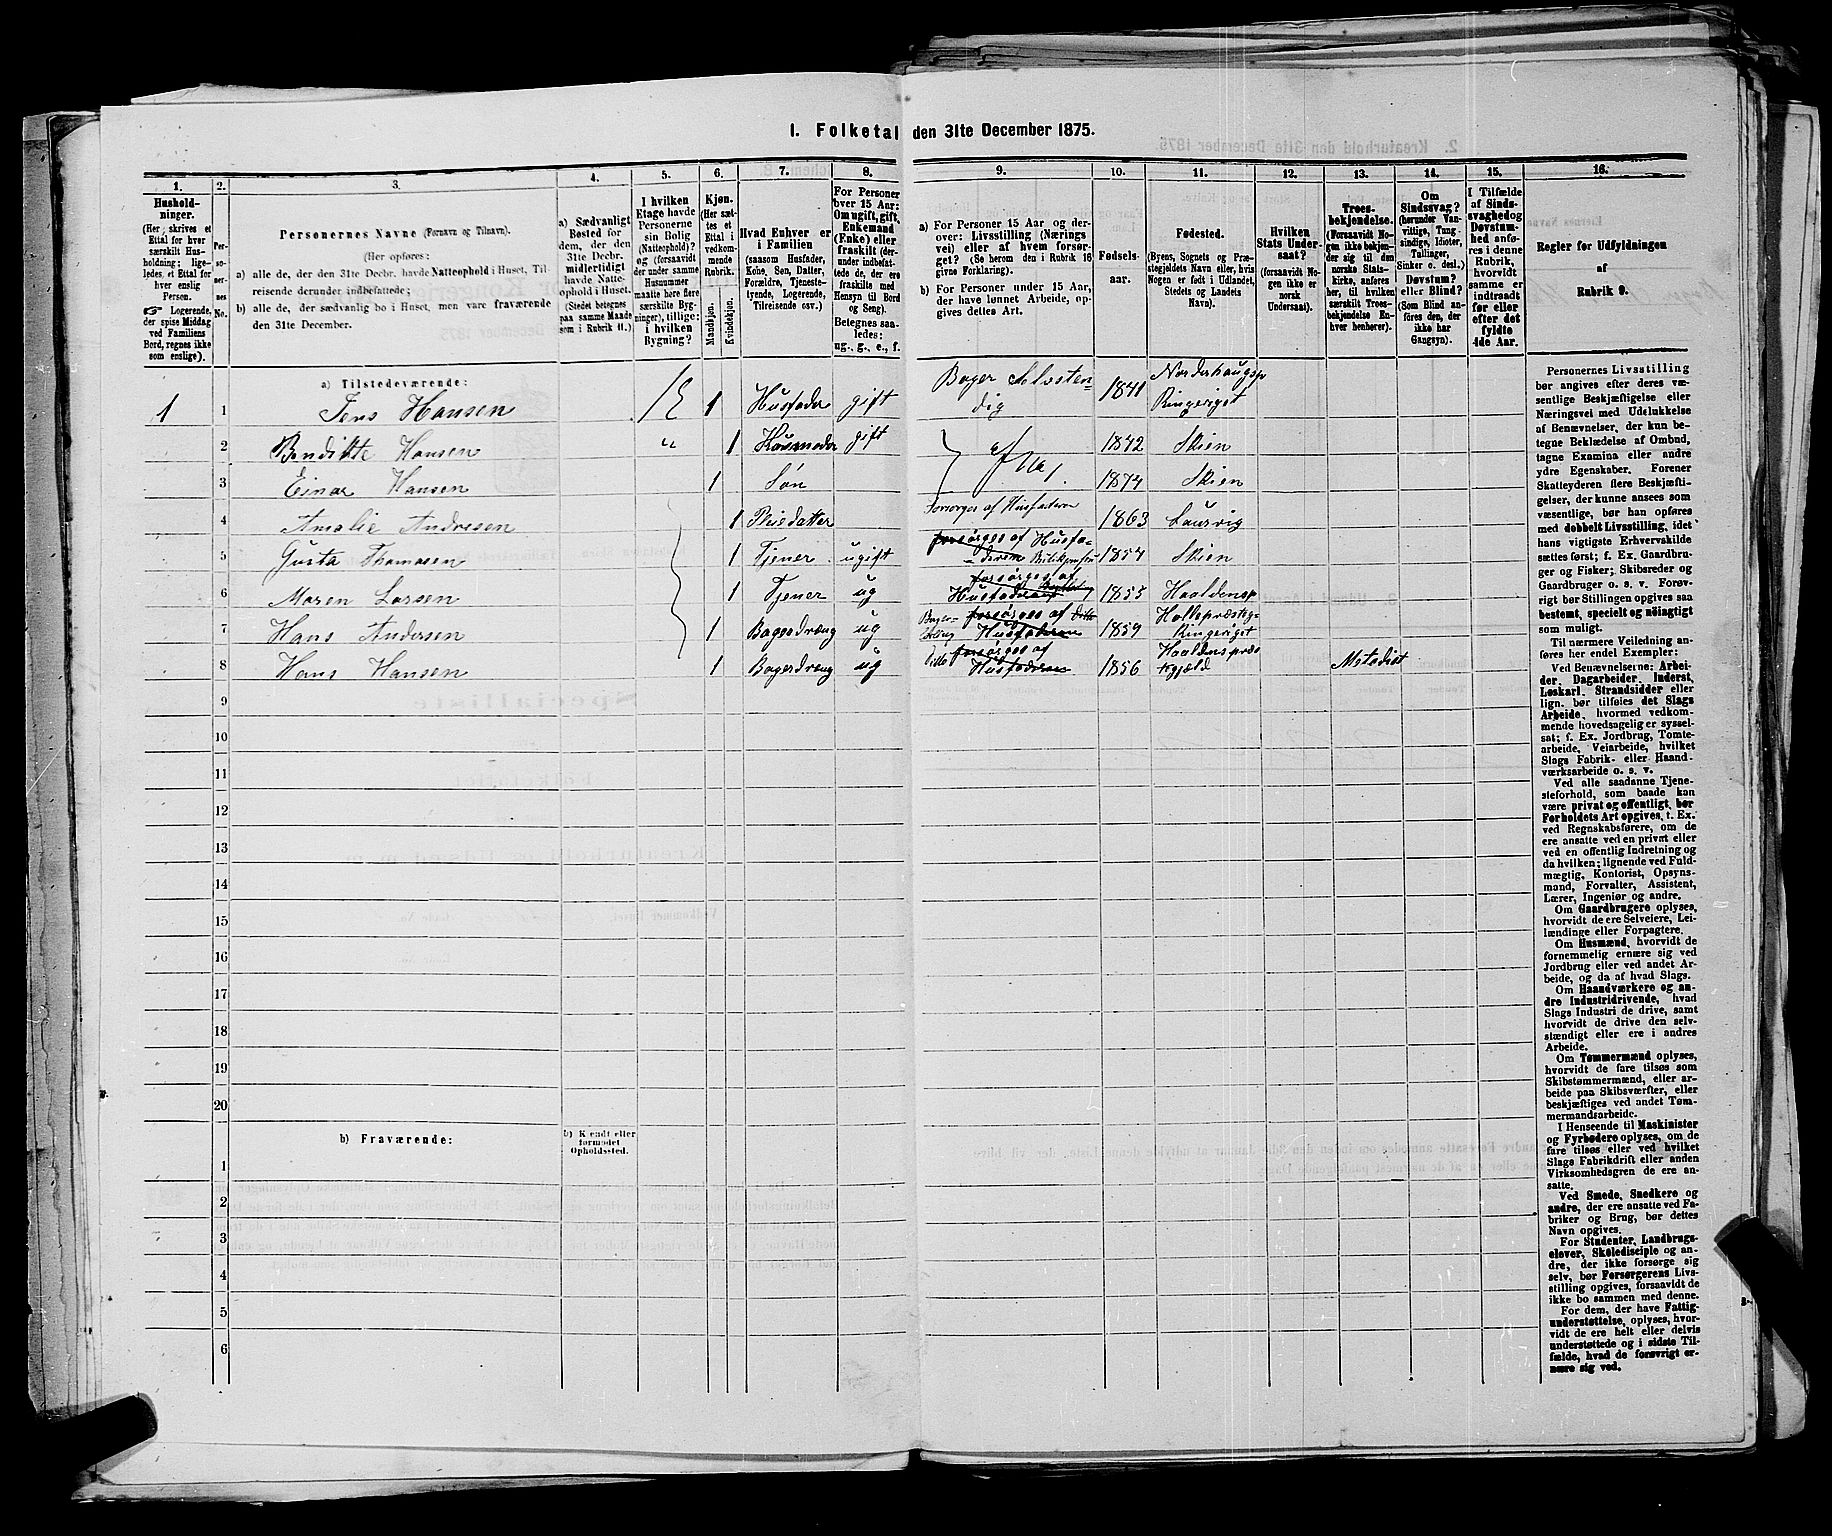 I. Folketal den 31te December 1875.
1.
Hushold-
ninger.
(Her skrives et
Ettal for hver
særskilt Hus-
holdning; lige-
ledes et Ettal for
hver enslig
Person.
☞ Logerende,
der spise Middag
ved Familiens
Bord, regnes ikke
som enslige).
2.
Per-
so-
ner-
nes
No.
3.
Personernes Navne (Fornavn og Tilnavn).
(Her opføres:
a) alle de, der den 31te Decbr. havde Natteophold i Huset, Til-
reisende derunder indbefattede;
b) alle de, der sædvanlig bo i Huset, men vare fraværende
den 31te December.
4.
a) Sædvanligt
Bosted for
dem, der den
31te Decbr.
midlertidigt
havde Natte-
ophold i Huset.
(Stedet betegnes
paa samme Maade
som i Rubrik 11.)
5.
I hvilken
Etage havde
Personerne
sin Bolig
(Natteophold)?
og (forsaavidt
der under samme
Husnummer
maatte høre flere
særskilte Byg-
ninger), tillige:
i hvilken
Bygning?
6.
Kjøn.
(Her sæt-
tes et
Ettal i
vedkom-
mende
Rubrik.
Mandkjøn.
Kvindekjøn.
7.
Hvad Enhver er
i Familien
(saasom Husfader,
Kone, Søn, Datter,
Forældre, Tjeneste-
tyende, Logerende,
Tilreisende osv.)
8.
For Personer
over 15 Aar:
Om ugift, gift,
Enkemand
(Enke) eller
fraskilt (der-
under indbefat-
tede de, der ere
fraskilte med
Hensyn til Bord
og Seng).
Betegnes saa-
ledes:
ug., g., e., f.
9.
a) For Personer 15 Aar og der-
over: Livsstilling (Nærings
vei) eller af hvem forsør-
get? (Se herom den i Rubrik 16
givne Forklaring).
b) For Personer under 15 Aar,
der have lønnet Arbeide, op-
gives dettes Art.
10.
Fødsels-
aar.
11.
Fødested.
(Byens, Sognets og Præ-
stegjeldets Navn eller, hvis
Nogen er født i Udlandet,
Stedets og Landets
Navn).
12.
Hvilken
Stats Under-
saat?
(forsaavidt No-
gen ikke er
norsk
Undersaat).
13.
Troes-
bekjendelse.
(Forsaavidt No-
gen ikke bekjen-
der sig til den
norske Stats-
kirke, anføres
her, til hvilken
særskilt Troes-
bekjendelse En-
hver henhører).
14.
Om
Sindssvag?
(herunder Van-
vittige, Tung-
sindige, Idioter,
Tullinger,
Sinker o. desl.)
Døvstum?
eller Blind?
(Som Blind an-
føres den, der
ikke har
Gangsyn).
15.
I Tilfælde
af Sinds-
svaghed og
Døvstum-
hed anfø-
res i denne
Rubrik,
hvorvidt
samme er
indtraadt
før eller
efter det
fyldte
4de Aar.
16.
Regler for Udfyldningen
af
Rubrik 9.
a) Tilstedeværende:
1 1 Jens Hansen 1 E 1 Husfader gift Bager Selvsten-
dig 1841 Norderhougsp
Ringeriget
2 Bendikte Hansen " 1 Husmoder gift 1842 Skien
3 Einar Hansen 1 Søn 1874 Skien
4 Amalie Andresen 1 Pleiedatter Forsorges af Husfaderen 1863 Laurvig
5 Gusta Thomasen 1 Tjener ugift forsørges af Husfa-
deren 1854 Skien
6 Maren Larsen 1 Tjener ug forsørges af
Husfaderen 1855 Hooldensp
7 Hans Andersen 1 Bagerdræng ug Bager-
dræng forsørges af Ditto
Husfaderen 1859 Hollepræsteg-
Ringeriget
8 Hans Hansen 1 Bagerdræng ug Ditto forsørges af
Husfaderen 1856 Hooldenspræs
tegjæld Metodist
9
10
11
12
13
14
15
16
17
18
19
20
b) Fraværende:
b) Kjendt eller
formodet
Opholdssted.
1
2
3
4
5
6
Personernes Livsstilling
bør angives efter deres væ-
sentlige Beskjæftigelse eller
Næringsvei med Udelukkelse
af Benævnelser, der kun be-
tegne Beklædelse af Ombud,
tagne Examina eller andre
ydre Egenskaber. Forener
Skatteyderen flere Beskjæfti-
gelser, der kunne ansees som
væsentlige, bør han opføres
med dobbelt Livsstilling, idet
hans vigtigste Erhvervskilde
sættes først; f. Ex. Gaardbru-
ger og Fisker; Skibsreder og
Gaardbruger o. s. v. Forøv-
rigt bør Stillingen opgives saa
bestemt, specielt og nøiagtigt
som muligt.
Til nærmere Veiledning an-
føres her endel Exempler:
Ved Benævnelserne: Arbei-
der, Dagarbeider, Inderst,
Løskarl, Strandsidder eller
lign. bør tilføies det Slags
Arbeide, hvormed vedkom-
mende hovedsagelig er syssel-
sat; f. Ex. Jordbrug, Tomte-
arbeide, Veiarbeide, hvilket
Slags Fabrik- eller Haand-
værksarbeide o. s. v.
Ved alle saadanne Tjene-
steforhold, som baade kan
være privat og offentligt, bør
Forholdets Art opgives, t. Ex.
ved Regnskabsførere, om de
ere ansatte ved en privat eller
ved en offentlig Indretning og
da hvilken; lignende ved Fuld-
mægtig, Kontorist, Opsyns-
mand, Forvalter, Assistent,
Lærer, Ingeniør og andre.
Om Gaardbrugere oplyses,
hvorvidt de ere Selveiere, Lei-
lændinge eller Forpagtere.
Om Husmænd, hvorvidt de
fornemmelig ernære sig ved
Jordbrug eller ved andet Ar-
beide, og da af hvad Slags.
Om Haandværkere og an-
dre Industridrivende, hvad
Slags Industri de drive, samt
hvorvidt de drive den selv-
stændigt eller ere i andres
Arbeide.
Om Tømmermænd oplyses,
hvorvidt de fare tilsøs som
Skibstømmermænd, eller ar-
beide paa Skibsværfter, eller
beskjæftiges ved andet Tøm-
mermandsarbeide.
I Henseende til Maskinister
og Fyrbødere oplyses, om de
fare tilsøs eller ved hvilket
Slags Fabrikdrift eller anden
Virksomhedsgren de ere an-
satte.
Ved Smede, Snedkere og
andre, der ere ansatte ved Fa-
briker og Brug, bør dettes
Navn opgives.
For Studenter, Landbrugs-
elever, Skoledisciple og an-
dre, der ikke forsørge sig
selv, bør Forsørgerens Livs-
stilling opgives, forsaavidt de
ikke bo sammen med denne.
For dem, der have Fattig-
understøttelse, oplyses, hvor-
vidt de ere helt eller delvis
understøttede og i sidste Til-
fælde, hvad de forøvrigt er-
nære sig ved.